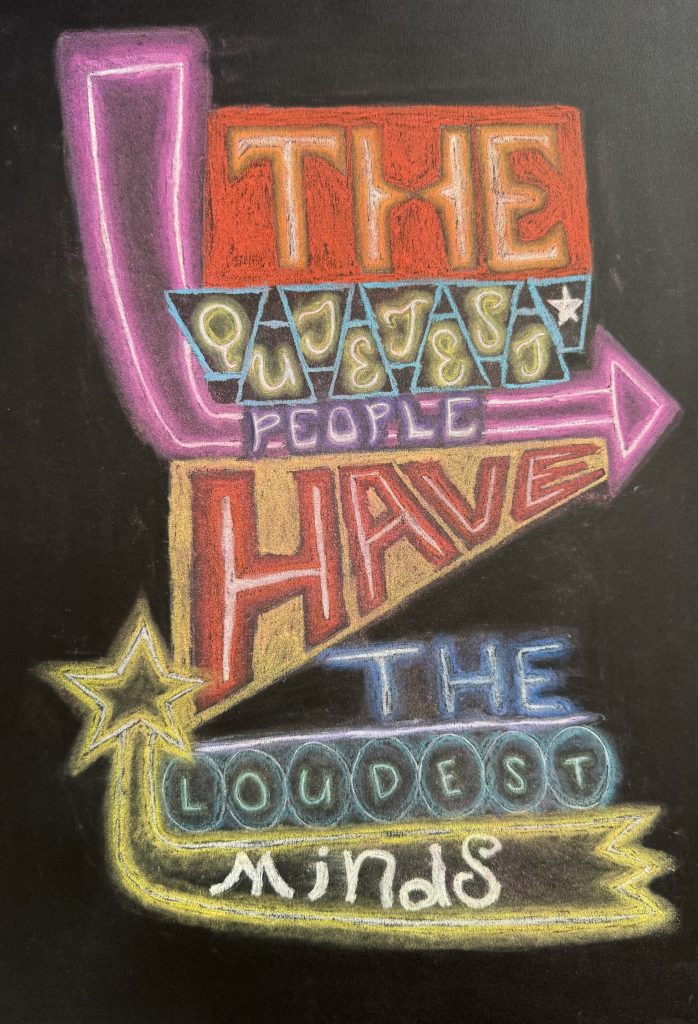 THE
QUIETEST
PEOPLE
HAVE
THE
LOUDEST
MiNdS